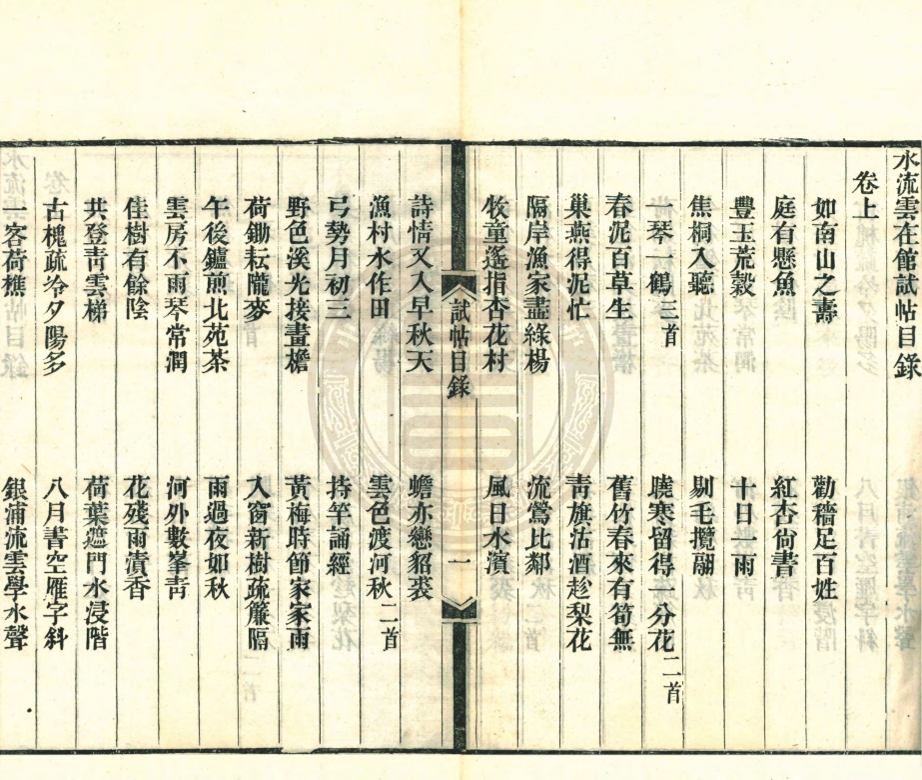 水流雲在館試帖目錄
卷上
如南山之壽　勸穡足百姓
庭有懸魚　紅杏尙書
豐玉荒穀　十日一雨
焦桐入聽　剔毛攬翮
一琴一鶴三首　曉寒留得一分花二首
春泥百草生　舊竹春來有筍無
巢燕得泥忙　靑旗沽酒趁梨花
隔岸漁家盡綠楊　流鶯比鄰
牧童遙指杏花村　風日水濱
試帖目錄　一
詩情又入早秋天　蟾亦戀貂裘
漁村水作田　雲色渡河秋二首
弓勢月初三　持竿誦經
野色溪光接畫檐　黃梅時節家家雨
荷鋤耘隴麥　入窗新樹疏簾隔
午後鑪煎北苑茶　雨過夜如秋
雲房不雨琴常潤　河外數峯靑
佳樹有餘陰　花殘雨漬香
共登靑雲梯　荷葉遮門水浸階
古槐疏冷夕陽多　八月書空雁字斜
一客荷樵　銀浦流雲學水聲